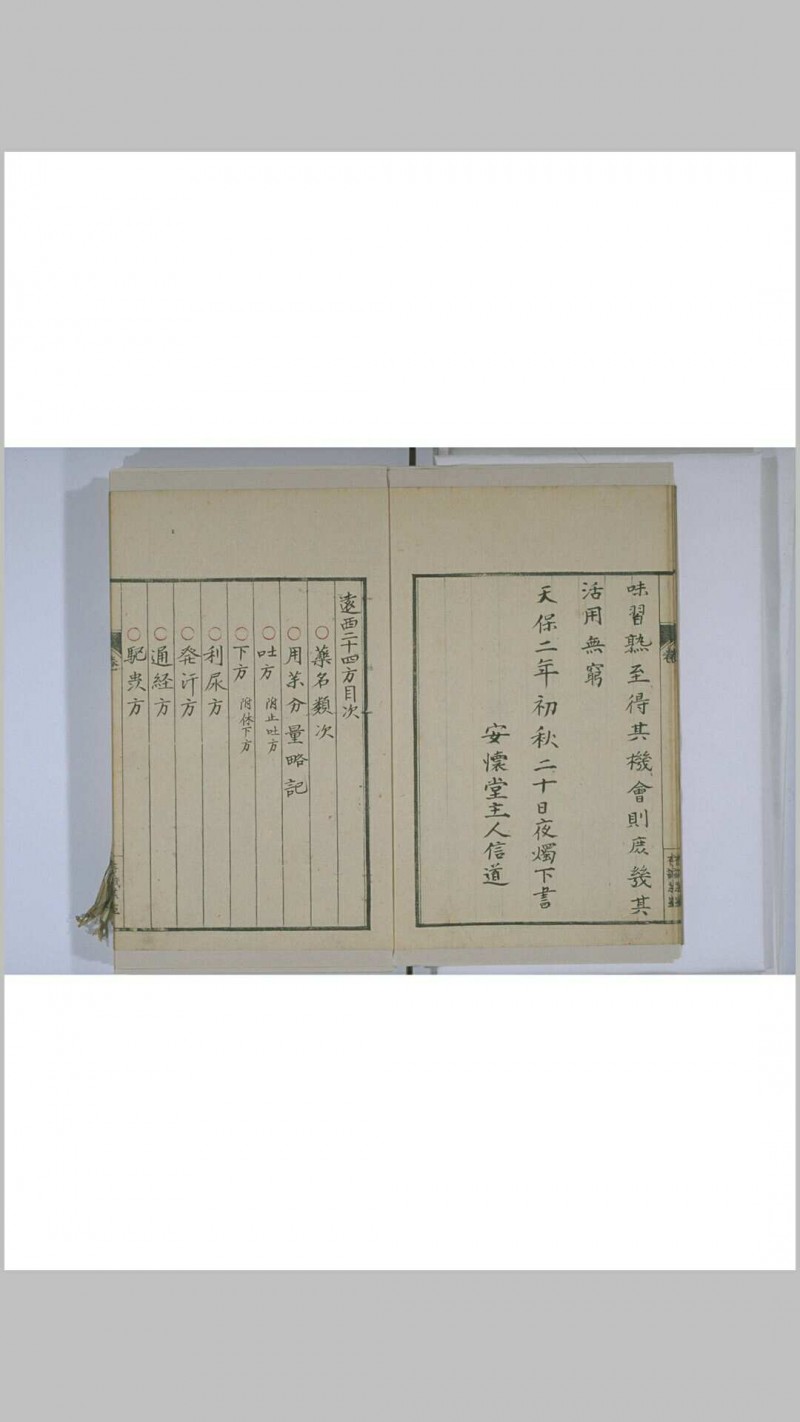 味習熟至得其機會則庶幾其
活用無窮
天保二年初秋二十日夜燭下書
安懷堂主人信道
遠西二十四方目次
○藥名類次
○用茶分量略記
○吐方 附止吐方
○下方 附休下方
○利尿方
○発汗方
○通経方
○駆
方